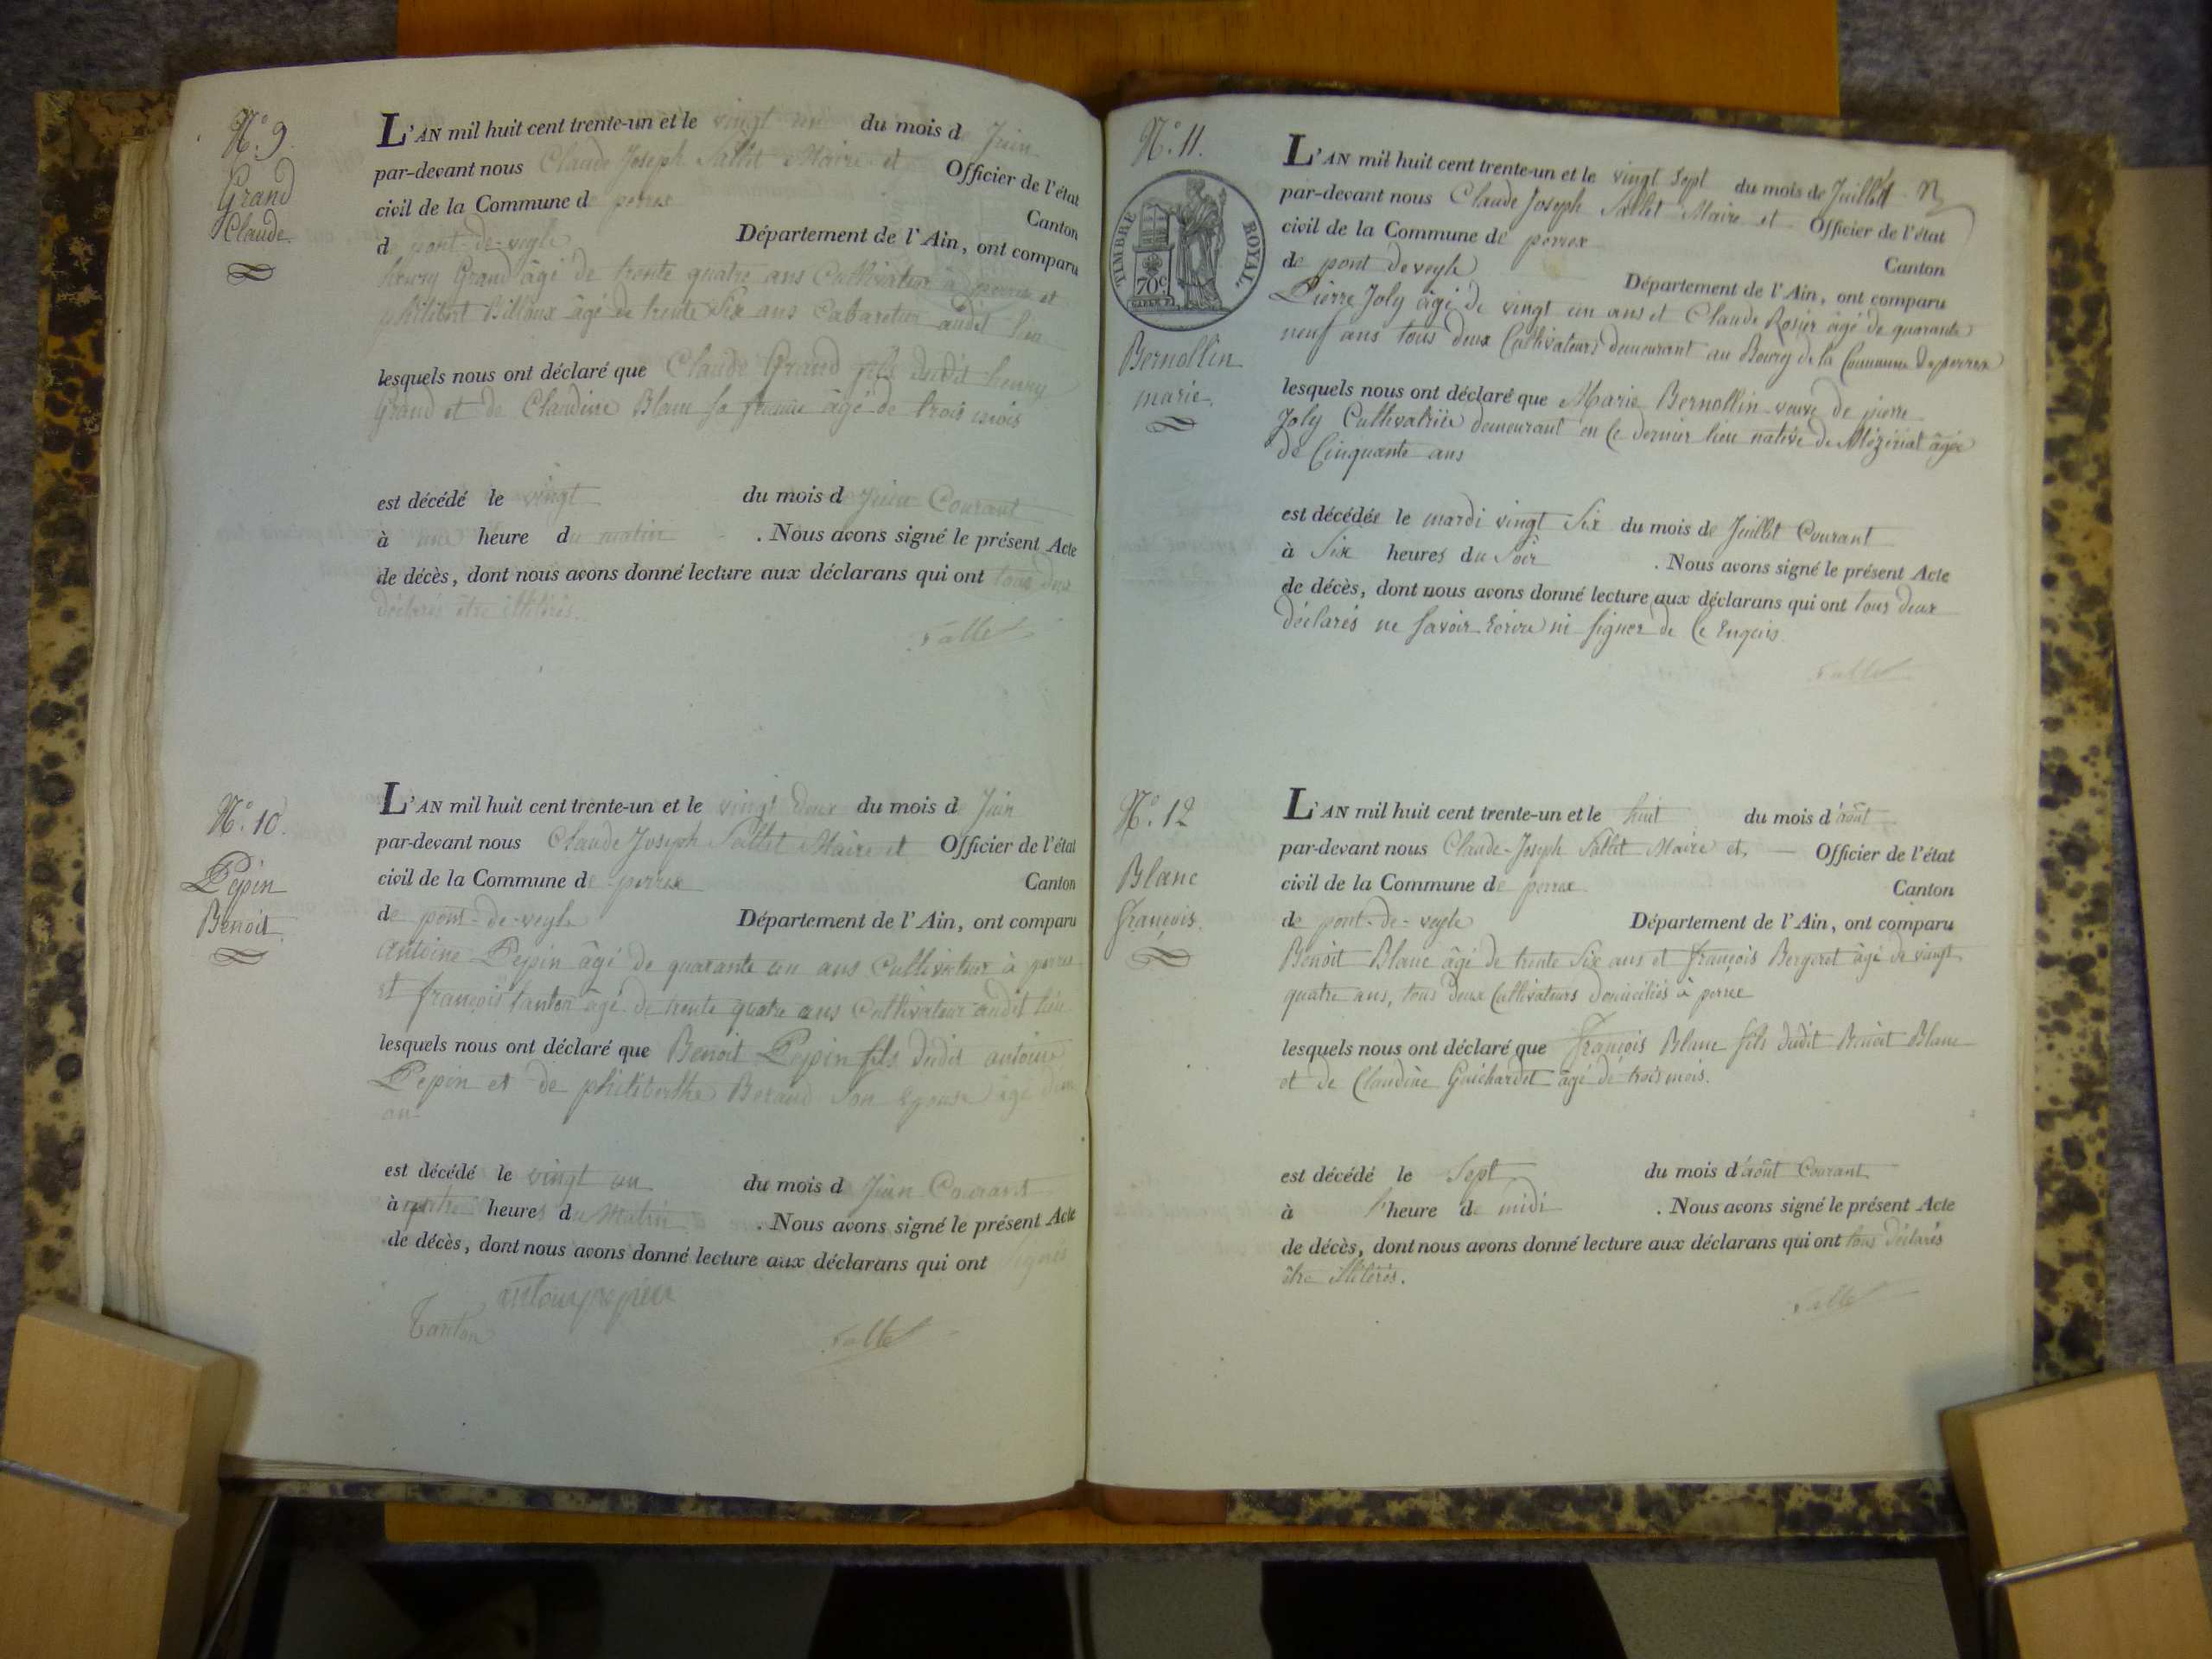 N.º 9.
Grand
Claude.
L'AN mil huit cent trente-un et le vingt un du mois d Juin
par-devant nous Claude Joseph Sallet Maire et Officier de l'état
civil de la Commune de perrex Canton
d pont-de-veyle Département de l'Ain, ont comparu
henry Grand âgé de trente quatre ans Cultivateur à perrex et
philibert Billoux âgé de trente Six ans Cabaretier audit lieu
lesquels nous ont déclaré que Claude Grand fils dudit henry
Grand et de Claudine Blanc sa femme âgé de trois mois
est décédé le vingt du mois d Juin Courant
à une heure du matin . Nous avons signé le présent Acte
de décès, dont nous avons donné lecture aux déclarans qui ont tous deux
déclarés être illitérés.
Sallet
N.º 10.
Pepin
Benoit.
L'AN mil huit cent trente-un et le vingt deux du mois d Juin
par-devant nous Claude Joseph Sallet Maire et Officier de l'état
civil de la Commune de perrex Canton
de pont-de-veyle Département de l'Ain, ont comparu
antoine Pepin âgé de quarante un ans Cultivateur à perrex
et françois tanton âgé de trente quatre ans Cultivateur audit lieu
lesquels nous ont déclaré que Benoit Pepin fils dudit antoine
Pepin et de philiberthe Beraud Son Epouse âgé d'un
an
est décédé le vingt un du mois d Juin Courant
à quatre heures du Matin . Nous avons signé le présent Acte
de décès, dont nous avons donné lecture aux déclarans qui ont signés
Tanton
Sallet
N.º 11.
TIMBRE ROYAL.
70 c
Bernollin
marie.
L'AN mil huit cent trente-un et le vingt sept du mois de Juillet
par-devant nous Claude Joseph Sallet Maire et Officier de l'état
civil de la Commune de perrex Canton
de pont de veyle Département de l'Ain, ont comparu
Pierre Joly âgé de vingt un ans et Claude Rosier âgé de quarante
neuf ans tous deux Cultivateurs demeurant au Bourg de la Commune de perrex
lesquels nous ont déclaré que Marie Bernollin veuve de pierre
Joly Cultivatrice demeurant en ce dernier lieu native de Mézériat âgée
de Cinquante ans
est décédée le mardi vingt Six du mois de Juillet Courant
à Six heures du Soir . Nous avons signé le présent Acte
de décès, dont nous avons donné lecture aux déclarans qui ont tous deux
déclarés ne Savoir Ecrire ni signer de ce Enquis
Sallet
N.º 12
Blanc
françois.
L'AN mil huit cent trente-un et le huit du mois d'août
par-devant nous Claude-Joseph Sallet Maire et, Officier de l'état
civil de la Commune de perrex Canton
de pont-de-veyle Département de l'Ain, ont comparu
Benoit Blanc âgé de trente Six ans et françois Bergeret âgé de vingt
quatre ans, tous deux Cultivateurs domiciliés à perrex
lesquels nous ont déclaré que François Blanc fils dudit Benoit Blanc
et de Claudine Guichardet âgé de trois mois.
est décédé le Sept du mois d'août Courant
à l'heure de midi . Nous avons signé le présent Acte
de décès, dont nous avons donné lecture aux déclarans qui ont tous déclarés
être illitérés.
Sallet